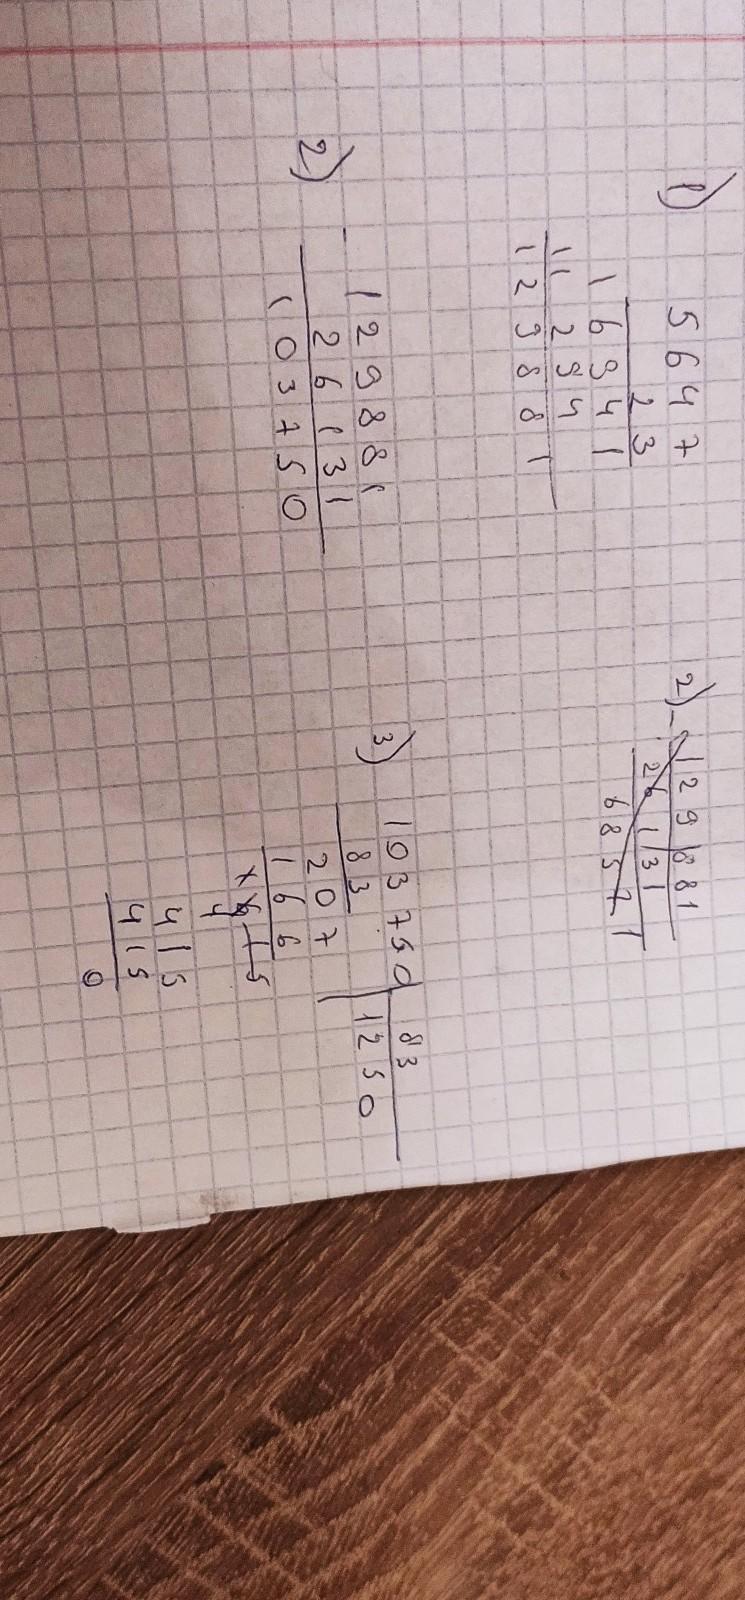 1)
5647
23
16941
11294
129881
2) -
129881
26131
68571
2)
- 129881
26131
103750
3)
103750 | 83
83 | 1250
207
166
415
415
0